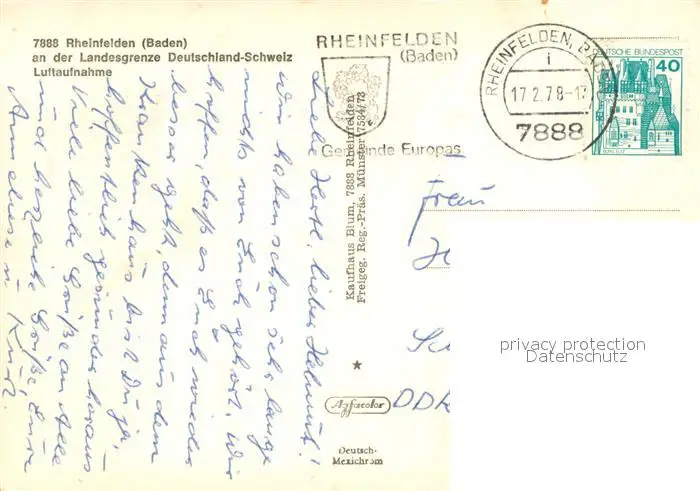 7888 Rheinfelden (Baden)
an der Landesgrenze Deutschland-Schweiz
Luftaufnahme
RHEINFELDEN
(Baden)
Gemeinde Europas
RHEINFELDEN, BADEN
i
17.2.78-1
7888
DEUTSCHE BUNDESPOST
40
BURG ELTZ
Liebe Hertl, lieber Helmut!
Wir haben schon sehr lange
nichts von Euch gehört. Wir
hoffen, daß es Euch wieder
besser geht, denn aus dem
Krankenhaus bist Du ja,
hoffentlich gesünder heraus
Viele liebe Grüße an Alle
und herzliche Grüße Eure
Anneliese u. Kurt.
Kaufhaus Blum, 7888 Rheinfelden
Freigeg. Reg.-Präs. Münster 7534/73
Agfacolor
Deutsch-
Mexichrom
Frau
DDR
privacy protection
Datenschutz